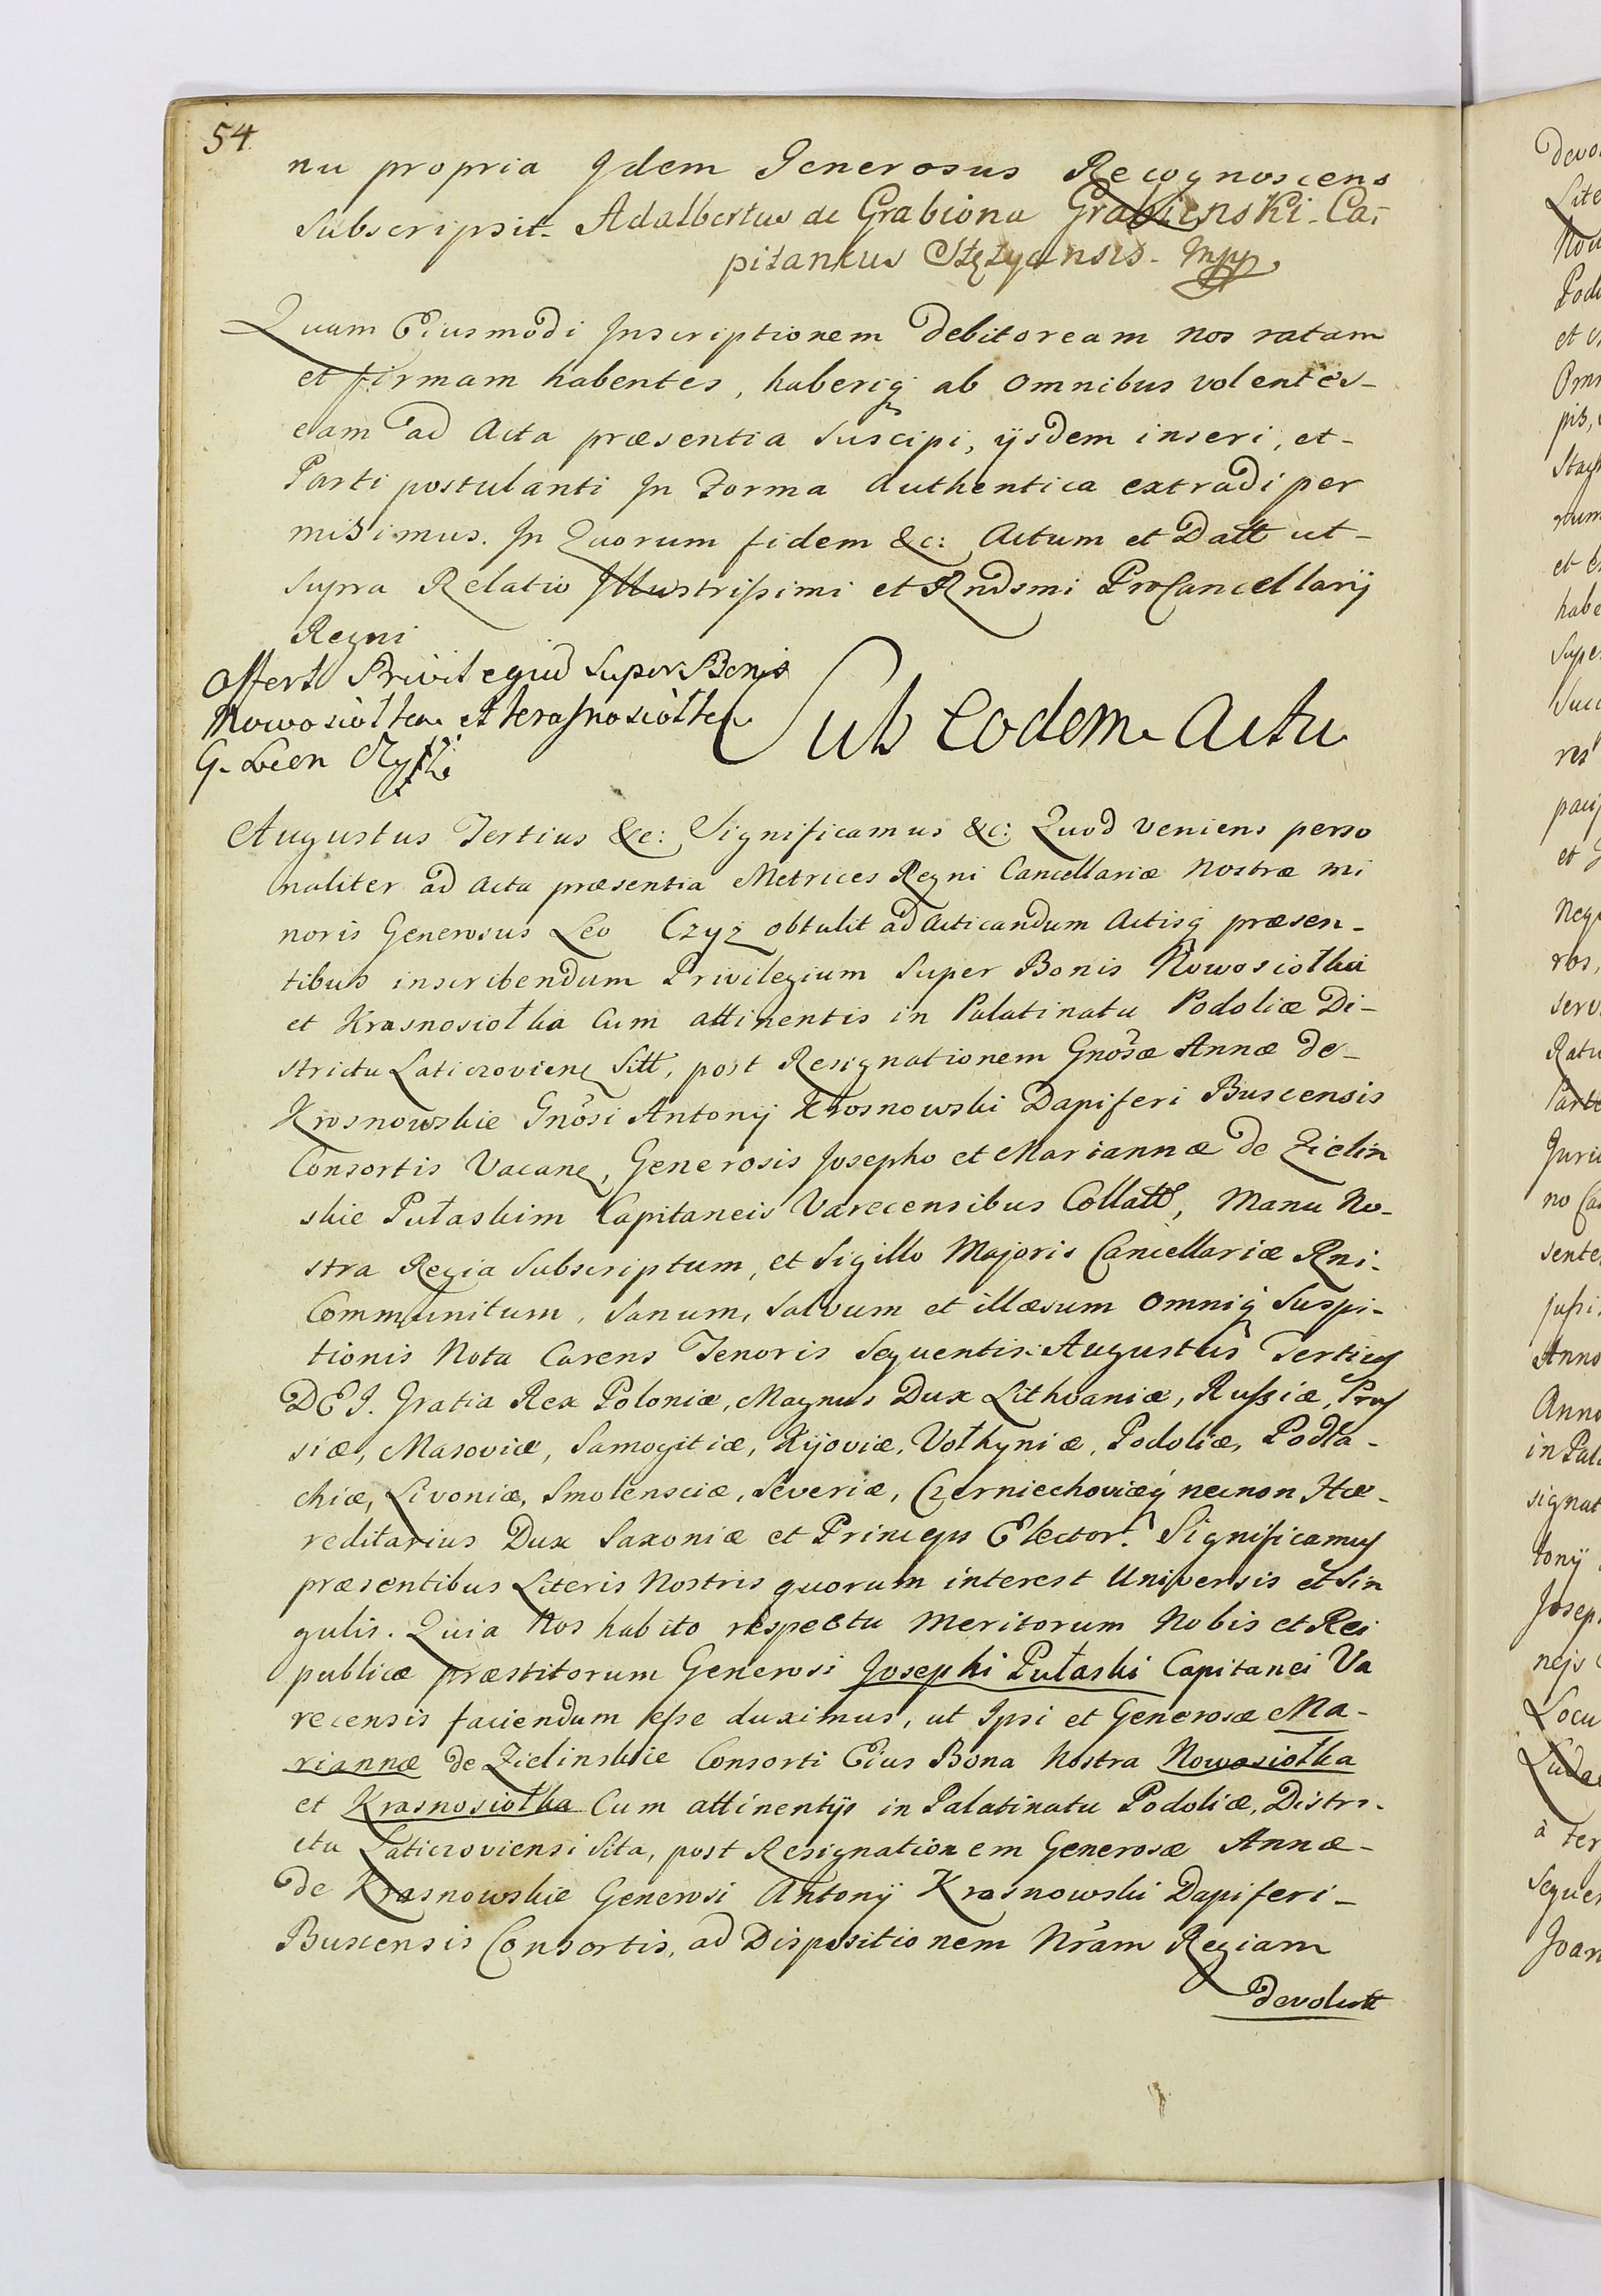 54.
nu propria Jdem Generosus Recognoscens
Subscripsit. Adalbertus de Grabiona Grabienski. Ca-
pitaneus Stęzycensis. mpp.
Quam Eiusmodi Jnscriptionem debitoream nos ratam
et firmam habentes, haberiq ab omnibus volentes-
eam ad Acta præsentia suscipi, ijsdem inseri, et-
Parti postulanti Jn Forma Authentica extradi per
misimus. Jn Quorum fidem &c: Actum et Datt ut-
supra Relatio Jllustrissimi et Rndsmi ProCancellarij
Regni
Offert Privilegiu Super Bonis
Nowosiołka et Krasnosiołka
G. Leon Czyż
Sub eodem Actu
Augustus Tertius &c: Significamus &c: Quod veniens perso
naliter ad Acta præsentia Metrices Regni Cancellariæ Nostræ mi
noris Generosus Leo Czyż obtulit ad Acticandum Actisq præsen-
tibus inscribendum Privilegium Super Bonis Nowosiołka
et Krasnosiołka Cum attinentis in Palatinatu Podoliæ Di-
strictu Laticzoviens Sitt, post Resignationem Gnosæ Annæ de-
Krosnowskie Gnosi Antonij Krosnowski Dapiferi Buscensis
Consortis Vacans, Generosis Josepho et Mariannæ de Zielin
skie Pułaskim Capitaneis Varecensibus Collatt, Manu No-
stra Regia Subscriptum, et Sigillo Majoris Cancellariæ Rni-
Communitum, Sanum, Salvum et illæsum omniq Suspi-
tionis Nota Carens Tenoris Sequentis. Augustus Tertius
DEJ. Gratia Rex Poloniæ, Magnus Dux Lithvaniæ, Russiæ, Prus
siæ, Masoviæ, Samogitiæ, Kijoviæ, Vołhyniæ, Podoliæ, Podla-
chiæ, Livoniæ, Smolensciæ, Severiæ, Czerniechoviæq necnon Hæ-
reditarius Dux Saxoniæ et Princeps Elector. Significamus
præsentibus Literis Nostris quorum interest Universis et Sin
gulis. Quia Nos habito respectu Meritorum Nobis et Rei
publicæ præstitorum Generosi Josephi Pułaski Capitanei Va
recensis faciendum esse duximus, ut Jpsi et Generosæ Ma-
riannæ de Zielinskie Consorti Eius Bona Nostra Nowosiołka
et Krasnosiołka Cum attinentijs in Palatinatu Podoliæ, Distri-
ctu Laticzoviensi Sita, post Resignationem Generosæ Annæ-
de Krasnowskie Generosi Antonij Krasnowski Dapiferi-
Buscensis Consortis, ad Dispositionem Nram Regiam
devolutt